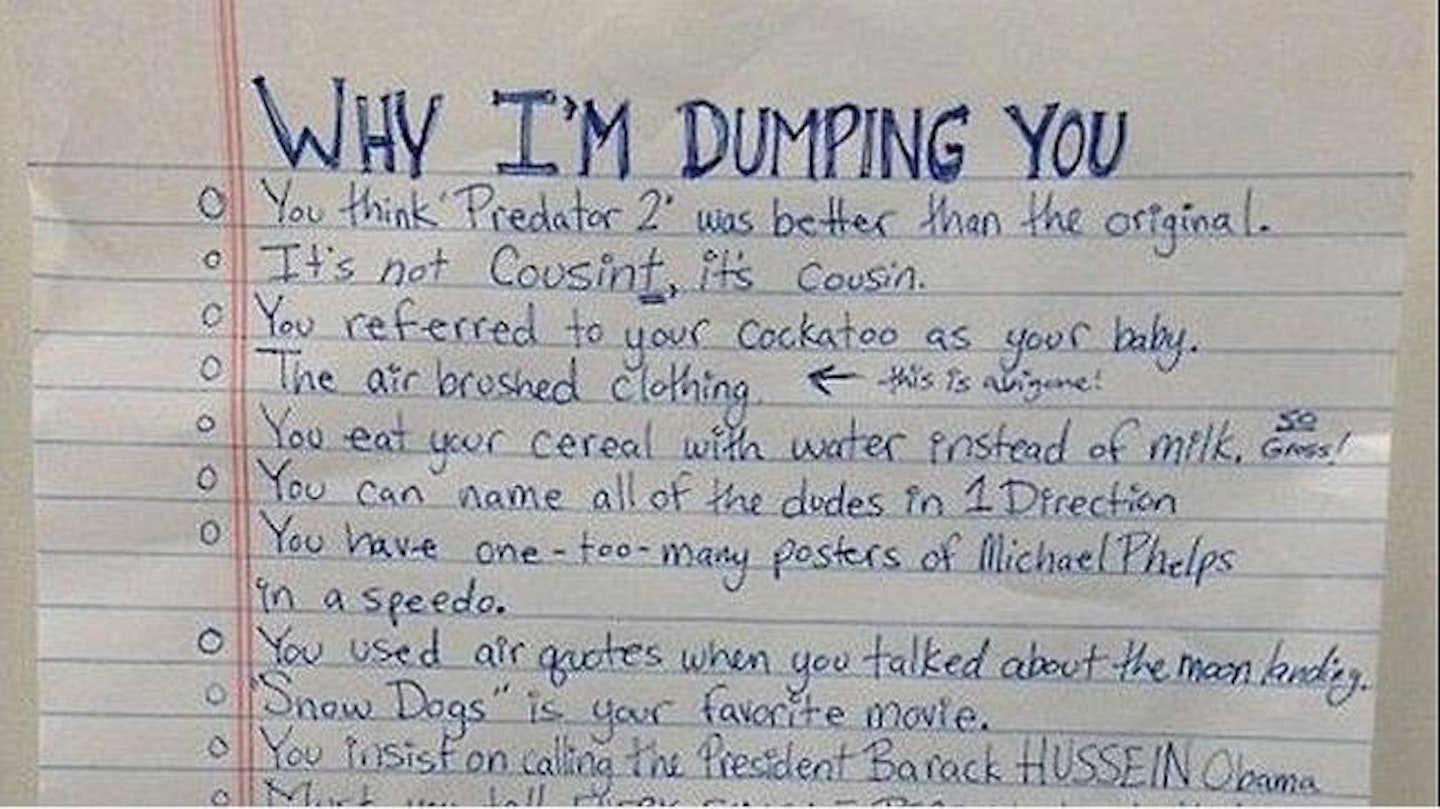 WHY I'M DUMPING YOU
You think 'Predator 2' was better than the original.
It's not Cousint, it's Cousin.
You referred to your cockatoo as your baby.
The air brushed clothing. ← this is a bigone!
You eat your cereal with water instead of milk. SO Gross!
You can name all of the dudes in 1 Direction
You have one-too-many posters of Michael Phelps
in a speedo.
You used air quotes when you talked about the moon landing.
"Snow Dogs" is your favorite movie.
You insist on calling the President Barack HUSSEIN Obama